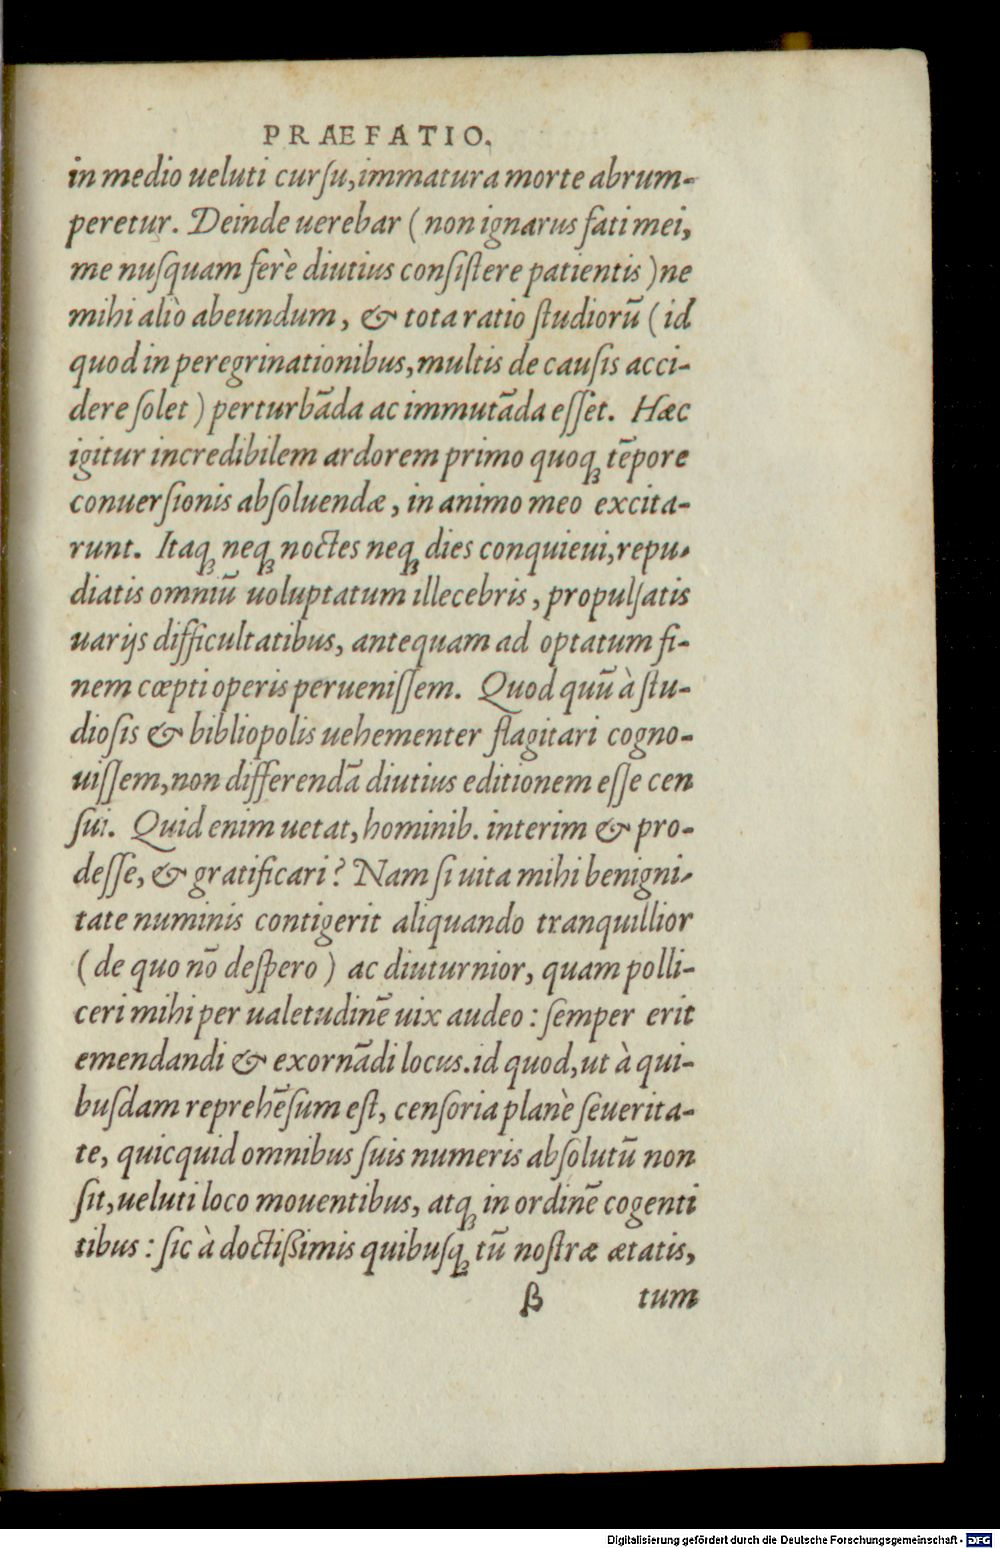 PRAEFATIO.
in medio ueluti curſu, immatura morte abrum-
peretur. Deinde uerebar (non ignarus fati mei,
me nuſquam ferè diutius conſiſtere patientis) ne
mihi aliò abeundum, & tota ratio ſtudiorū (id
quod in peregrinationibus, multis de cauſis acci-
dere ſolet) perturbāda ac immutāda eſſet. Hæc
igitur incredibilem ardorem primo quoqꝫ tēpore
conuerſionis abſoluendæ, in animo meo excita-
runt. Itaqꝫ neqꝫ noctes neqꝫ dies conquieui, repu-
diatis omniū uoluptatum illecebris, propulſatis
uarijs difficultatibus, antequam ad optatum fi-
nem cœpti operis perueniſſem. Quod quū à ſtu-
dioſis & bibliopolis uehementer flagitari cogno-
uiſſem, non differendā diutius editionem eſſe cen
ſui. Quid enim uetat, hominib. interim & pro-
deſſe, & gratificari? Nam ſi uita mihi benigni-
tate numinis contigerit aliquando tranquillior
(de quo nō deſpero) ac diuturnior, quam polli-
ceri mihi per ualetudinē uix audeo: ſemper erit
emendandi & exornādi locus. id quod, ut à qui-
buſdam reprehēſum eſt, cenſoria planè ſeuerita-
te, quicquid omnibus ſuis numeris abſolutū non
ſit, ueluti loco mouentibus, atqꝫ in ordinē cogenti
tibus: ſic à doctißimis quibuſqꝫ tū noſtræ ætatis,
β tum
Digitalisierung gefördert durch die Deutsche Forschungsgemeinschaft - DFG